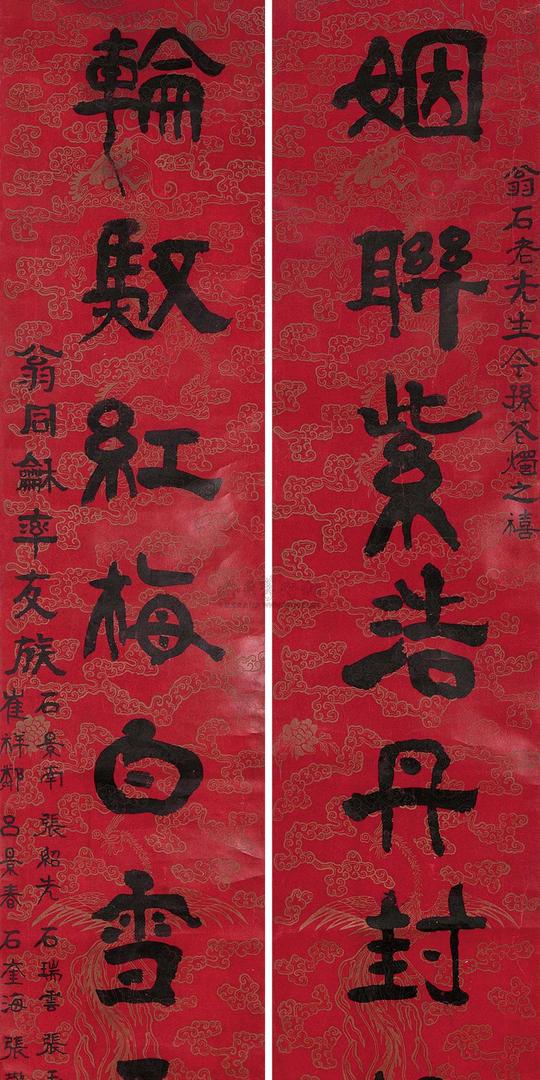 翁石老先生令孫花燭之禧
姻聯紫浩丹封
輪馭紅梅白雪
翁同龢率友族
石景南 張紹先 石瑞雲 張
崔祥鄰 呂景春 石奎海 張